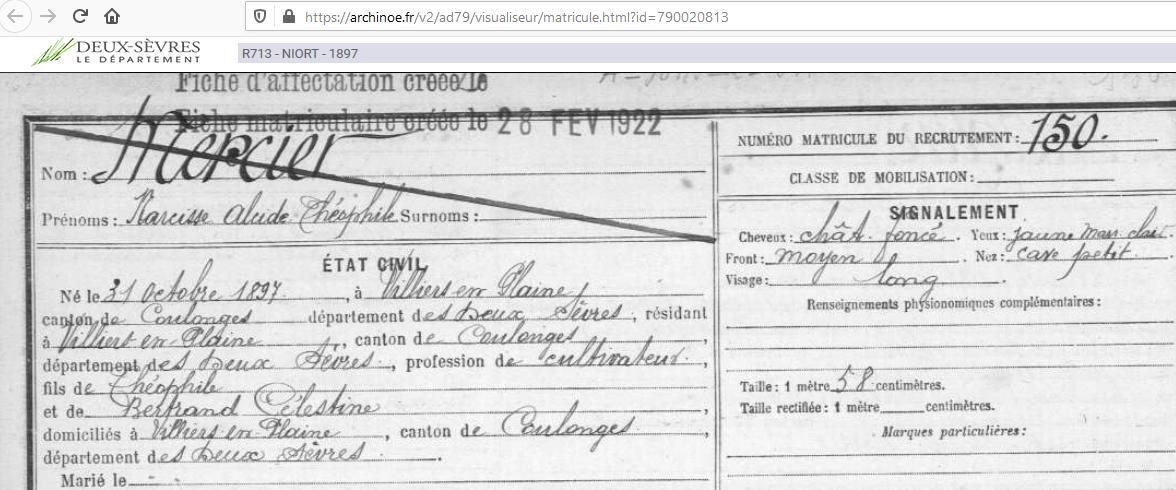 https://archinoe.fr/v2/ad79/visualiseur/matricule.html?id=790020813
DEUX-SÈVRES
LE DÉPARTEMENT
R713 - NIORT - 1897
Fiche d'affectation créée le
Fiche matriculaire créée le 28 FEV 1922
Nom : Mercier
Prénoms : Narcisse Alcide Théophile Surnoms :
ÉTAT CIVIL
Né le 31 octobre 1897, à Villiers en Plaine
canton de Coulonges département des Deux Sèvres, résidant
à Villiers en Plaine, canton de Coulonges,
département des Deux Sèvres, profession de cultivateur,
fils de Théophile
et de Bertrand Célestine,
domiciliés à Villiers en Plaine, canton de Coulonges,
département des Deux Sèvres.
Marié le
NUMÉRO MATRICULE DU RECRUTEMENT : 150.
CLASSE DE MOBILISATION :
SIGNALEMENT
Cheveux : chât. foncé. Yeux : jaune marr. clair.
Front : moyen. Nez : cave petit.
Visage : long.
Renseignements physionomiques complémentaires :
Taille : 1 mètre 58 centimètres.
Taille rectifiée : 1 mètre centimètres.
Marques particulières :